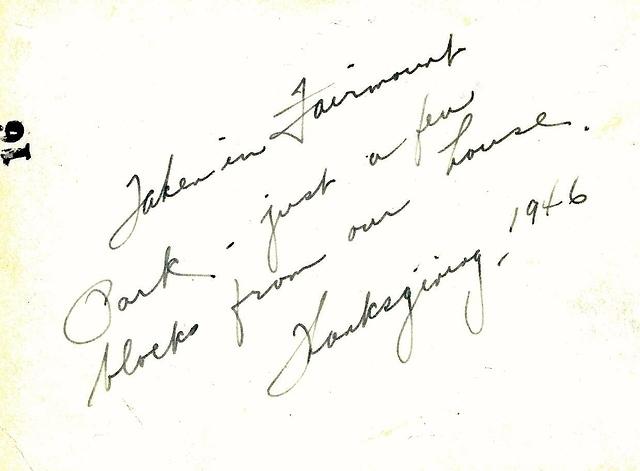 Taken in Fairmount
Park - just a few
blocks from our house.
Thanksgiving, 1946
16